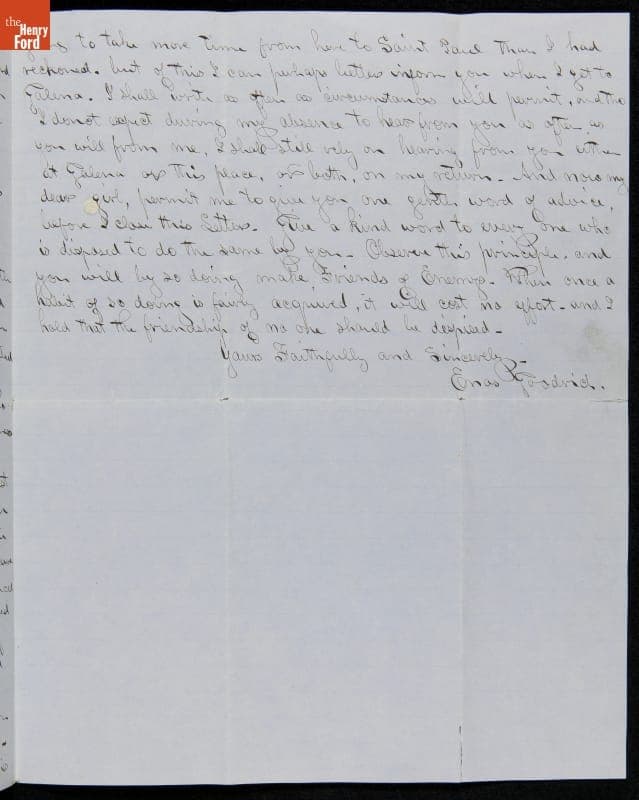 the
Henry
Ford
going to take more time from here to Saint Paul than I had
reckoned. but of this I can perhaps better inform you when I get to
Galena. I shall write as often as circumstances will permit, and tho
I do not expect during my absence to hear from you as often as
you will from me, I shall still rely on hearing from you either
at Galena or this peace, or both, on my return. And now my
dear girl, permit me to give you one gentle word of advice,
before I close this Letter. Give a kind word to every one who
is disposed to do the same by you. Observe this principle, and
you will by so doing make Friends of Enemys. When once a
habit of so doing is fairly acquired, it will cost no effort. and I
hold that the friendship of no one should be despised.
Yours Faithfully and Sincerely.
Enos Goodrich.